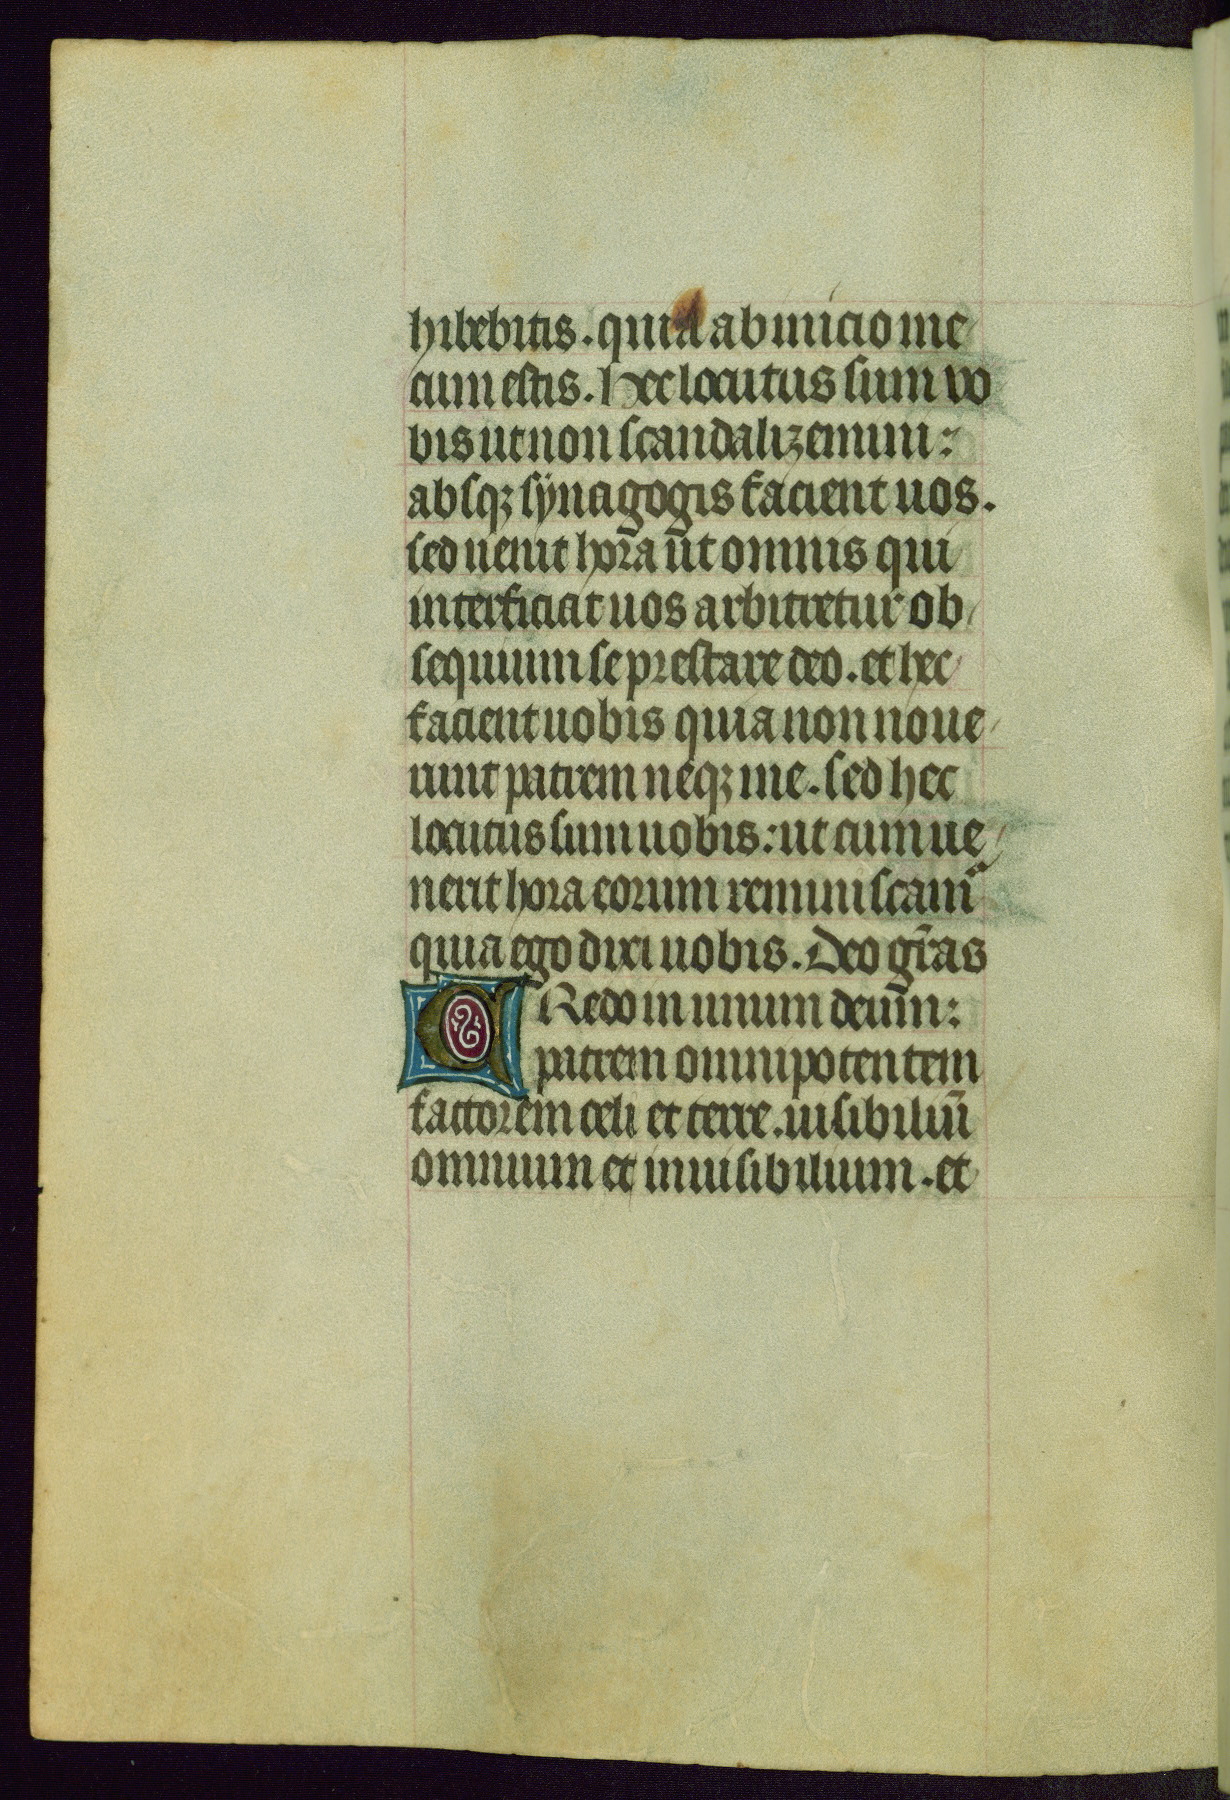 hibebitis. quia ab inicio me
cum estis. Hec locutus sum vo
bis ut non scandalizemini:
absqꝫ sÿnagogis facient uos.
sed uenit hora ut omnis qui
interficiat uos arbitretur ob
sequium se prestare deo. et hec
facient uobis quia non noue
runt patrem neqꝫ me. sed hec
locutus sum uobis: ut cum ue
nerit hora eorum reminiscamī
quia ego dixi uobis. Deo gr̄as
CRedo in unum deum:
patrem omnipotentem
factorem celi et terre. uisibiliū
omnium et inuisibilium. et